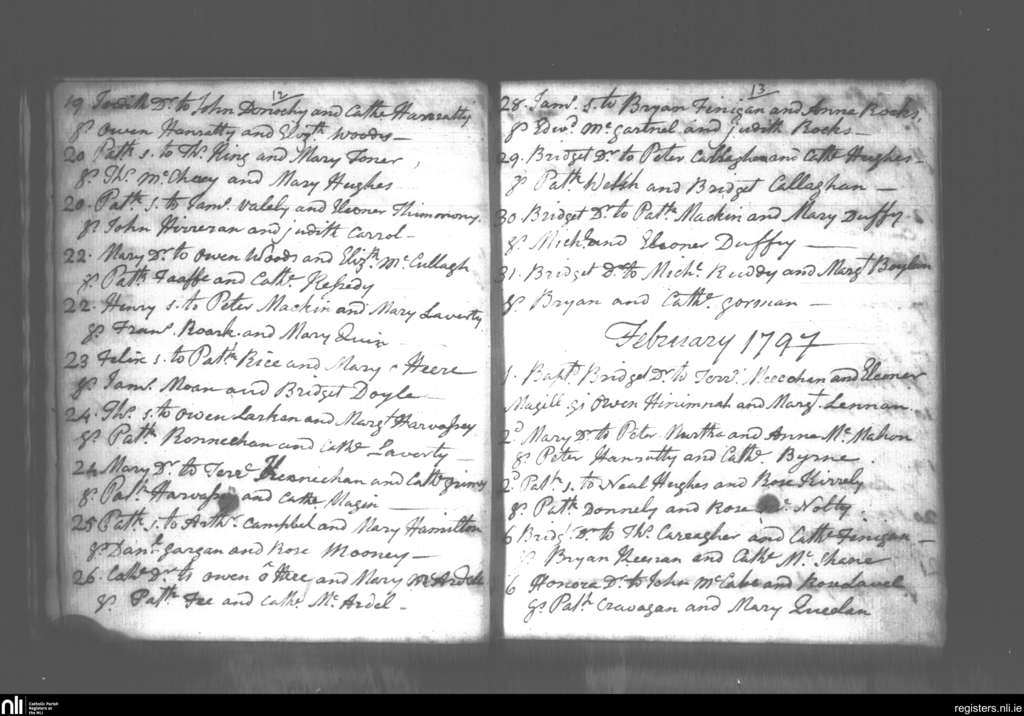 12
19 Judith Dr. to John Donochy and Cathe Hanratty
gs. Owen Hanratty and Elizth Woods —
20 Patk s. to Ths. King and Mary Toner
gs. Ths. McChavy and Mary Hughes
20. Patk. s. to Jams. Valely and Eleoner
gs. John and Judith Carrol —
22. Mary Dr. to Owen Woods and Elizth. McCullagh
gs. Patk Taaffe and Cathe.
22. Henry s. to Peter Mackin and Mary Laverty
gs. Frans. Roark and Mary Quin
23 Felix s. to Patk Rice and Mary Heere
gs. Jams. Moan and Bridget Doyle
24. Ths. s. to Owen Larkan and Margt Harvassey
gs. Patk Ronneehan and Cathe Laverty —
24 Mary Dr. to Terre. and Cathe
gs. Patk. and Cathe Magin —
25 Patk s. to Arthr. Campbel and Mary Hamilton
gs. Danl. Gargan and Rose Mooney —
26. Cathe Dr. to Owen and Mary McArdell
gs. Patk Fee and Cathe. McArdel —
13
28. Jams. s. to Bryan Finigan and Anne Rocks.
gs. Edwd. McGartnel and Judith Rocks —
29. Bridget Dr. to Peter Callaghan and Cathe Hughes —
gs. Patk. Welsh and Bridget Callaghan —
30 Bridget Dr. to Patk. Mackin and Mary Duffy
gs. Michl. and Eleoner Duffey —
31. Bridget Dr. to Michl. Ruddy and Margt Boylan
gs. Bryan and Cathe. Gorman —
February 1797
1. Bapt. Bridget Dr. to Terre. and Eleoner
Magill. gs. Owen and Margt. Lennan.
2d Mary Dr. to Peter Murtha and Anne McMahon
gs. Peter Hanratty and Cathe Byrne.
2d Patk. s. to Neal Hughes and Rose
gs. Patk Donnely and Rose
6 Bridgt. Dr. to Ths. Careagher and Cathe Finigan —
gs. Bryan Keenan and Cathe McShane
6 Honora Dr. to John McCabe and
gs. Patk. Cravagan and Mary Quedan
nli
Catholic Parish
Registers at
the NLI
registers.nli.ie